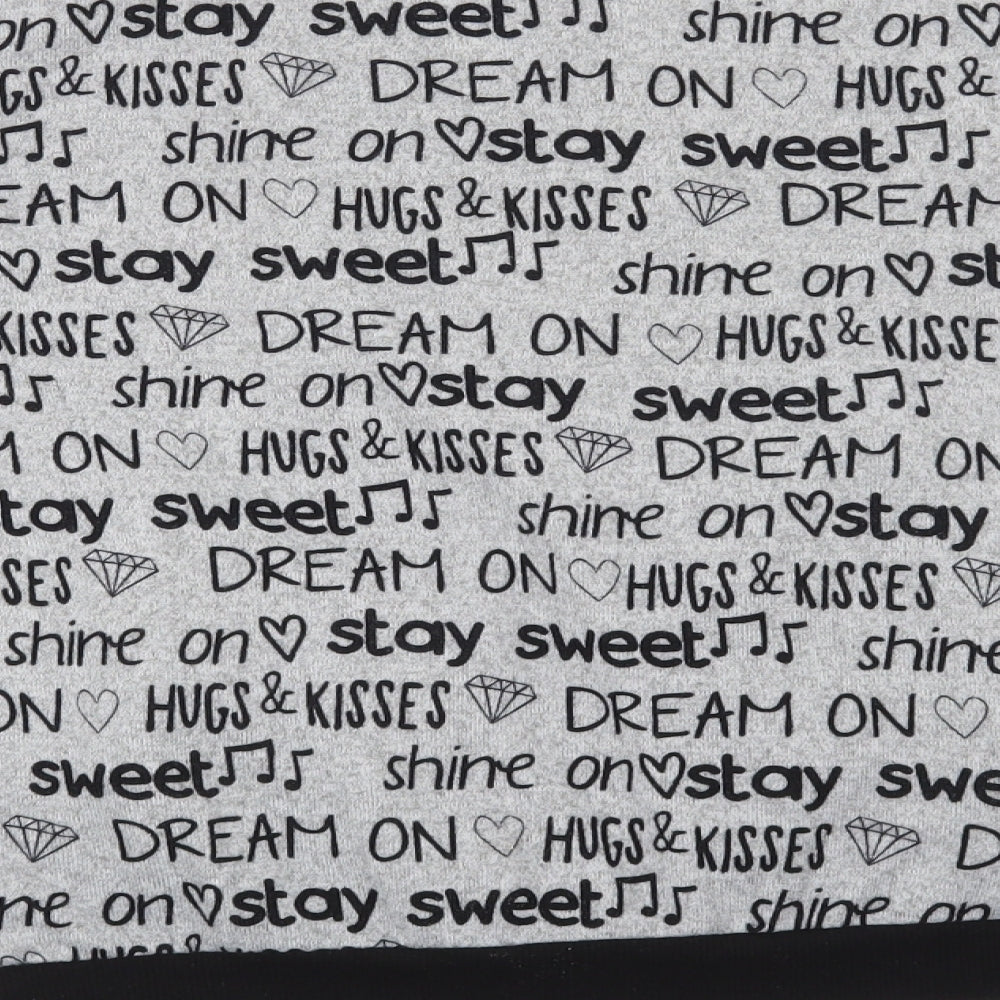 on stay sweet shine on
GS & KISSES DREAM ON HUGS &
shine on stay sweet
EAM ON HUGS & KISSES DREAM
stay sweet shine on st
KISSES DREAM ON HUGS & KISSE
shine on stay sweet
M ON HUGS & KISSES DREAM ON
tay sweet shine on stay
SES DREAM ON HUGS & KISSES
shine on stay sweet shine
ON HUGS & KISSES DREAM ON
sweet shine on stay swe
DREAM ON HUGS & KISSES D
ne on stay sweet shine on
HUGS &